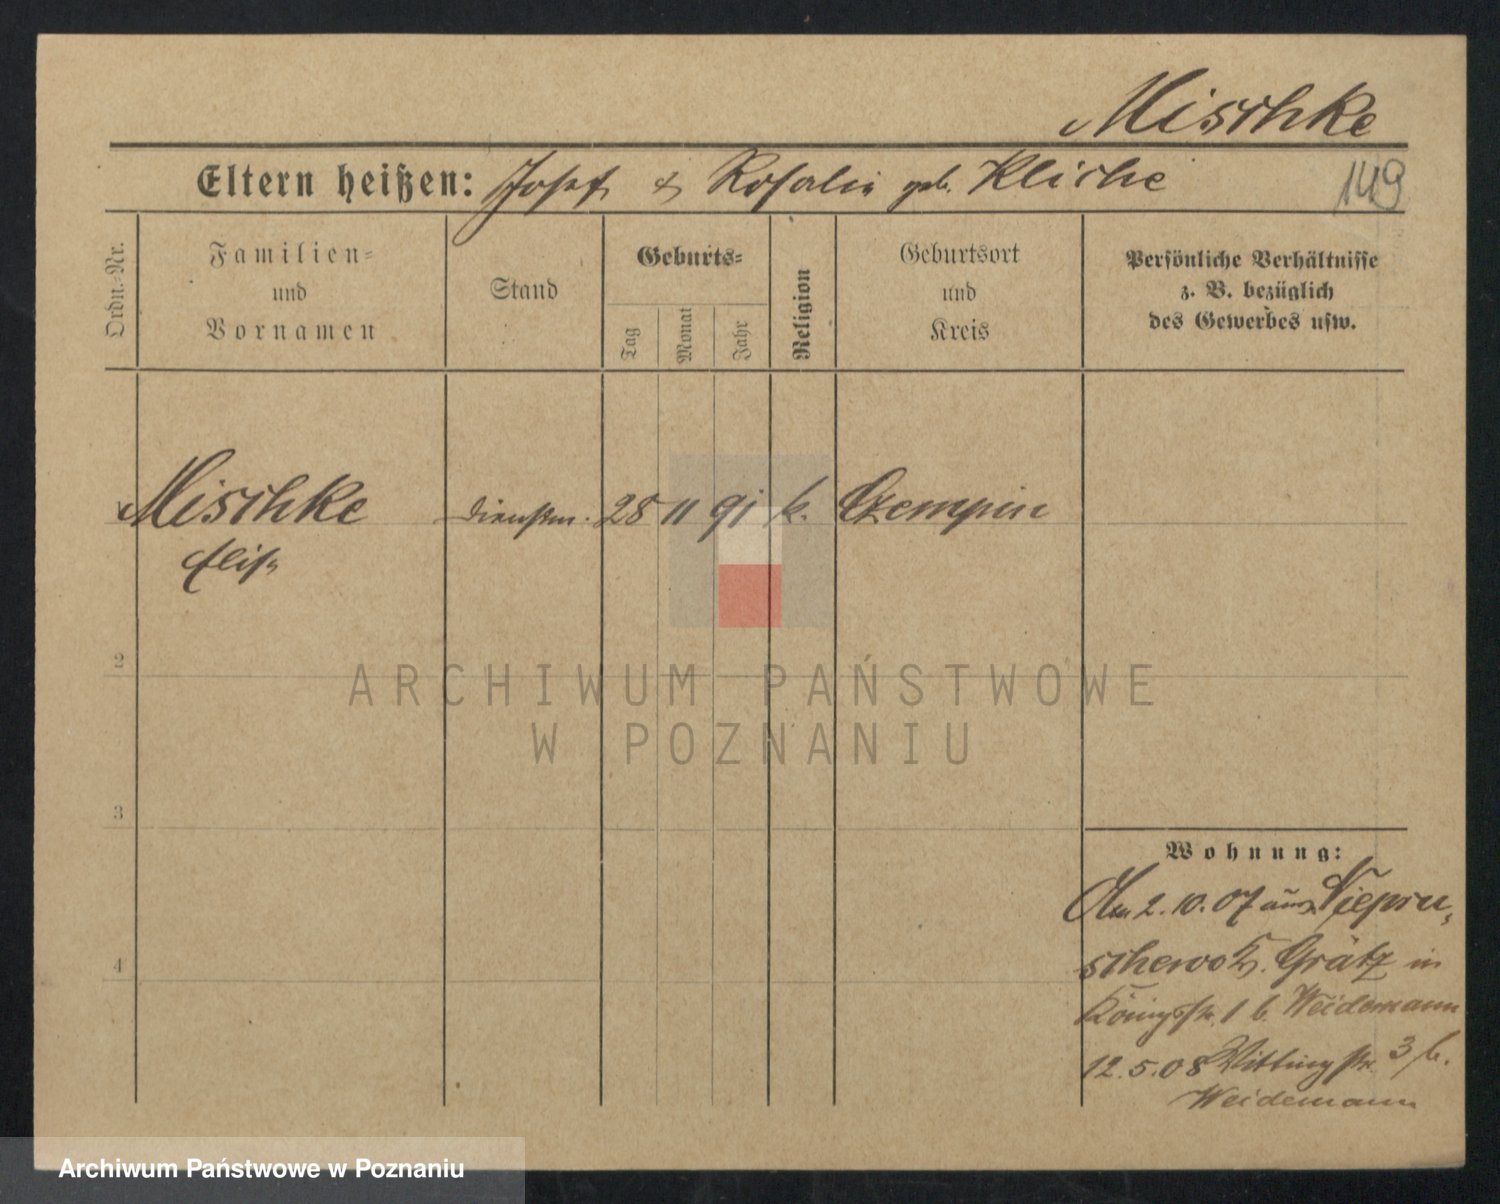 Mischke
Eltern heißen: Josef & Rosalie geb. Kliche
149
Ordn.-Nr.
Familien-
und
Vornamen
Stand
Geburts-
Tag
Monat
Jahr
Religion
Geburtsort
und
Kreis
Persönliche Verhältnisse
z. B. bezüglich
des Gewerbes usw.
Mischke
Elise
Dienstm. 28 11 91 k. Czempin
2
ARCHIWUM PAŃSTWOWE
W POZNANIU
3
4
Wohnung:
Am 2.10.07 aus Niepru-
schewo Kr. Grätz in
Königsstr. 1 b. Weidemann
12.5.08 Wittingstr. 3 b.
Weidemann
Archiwum Państwowe w Poznaniu